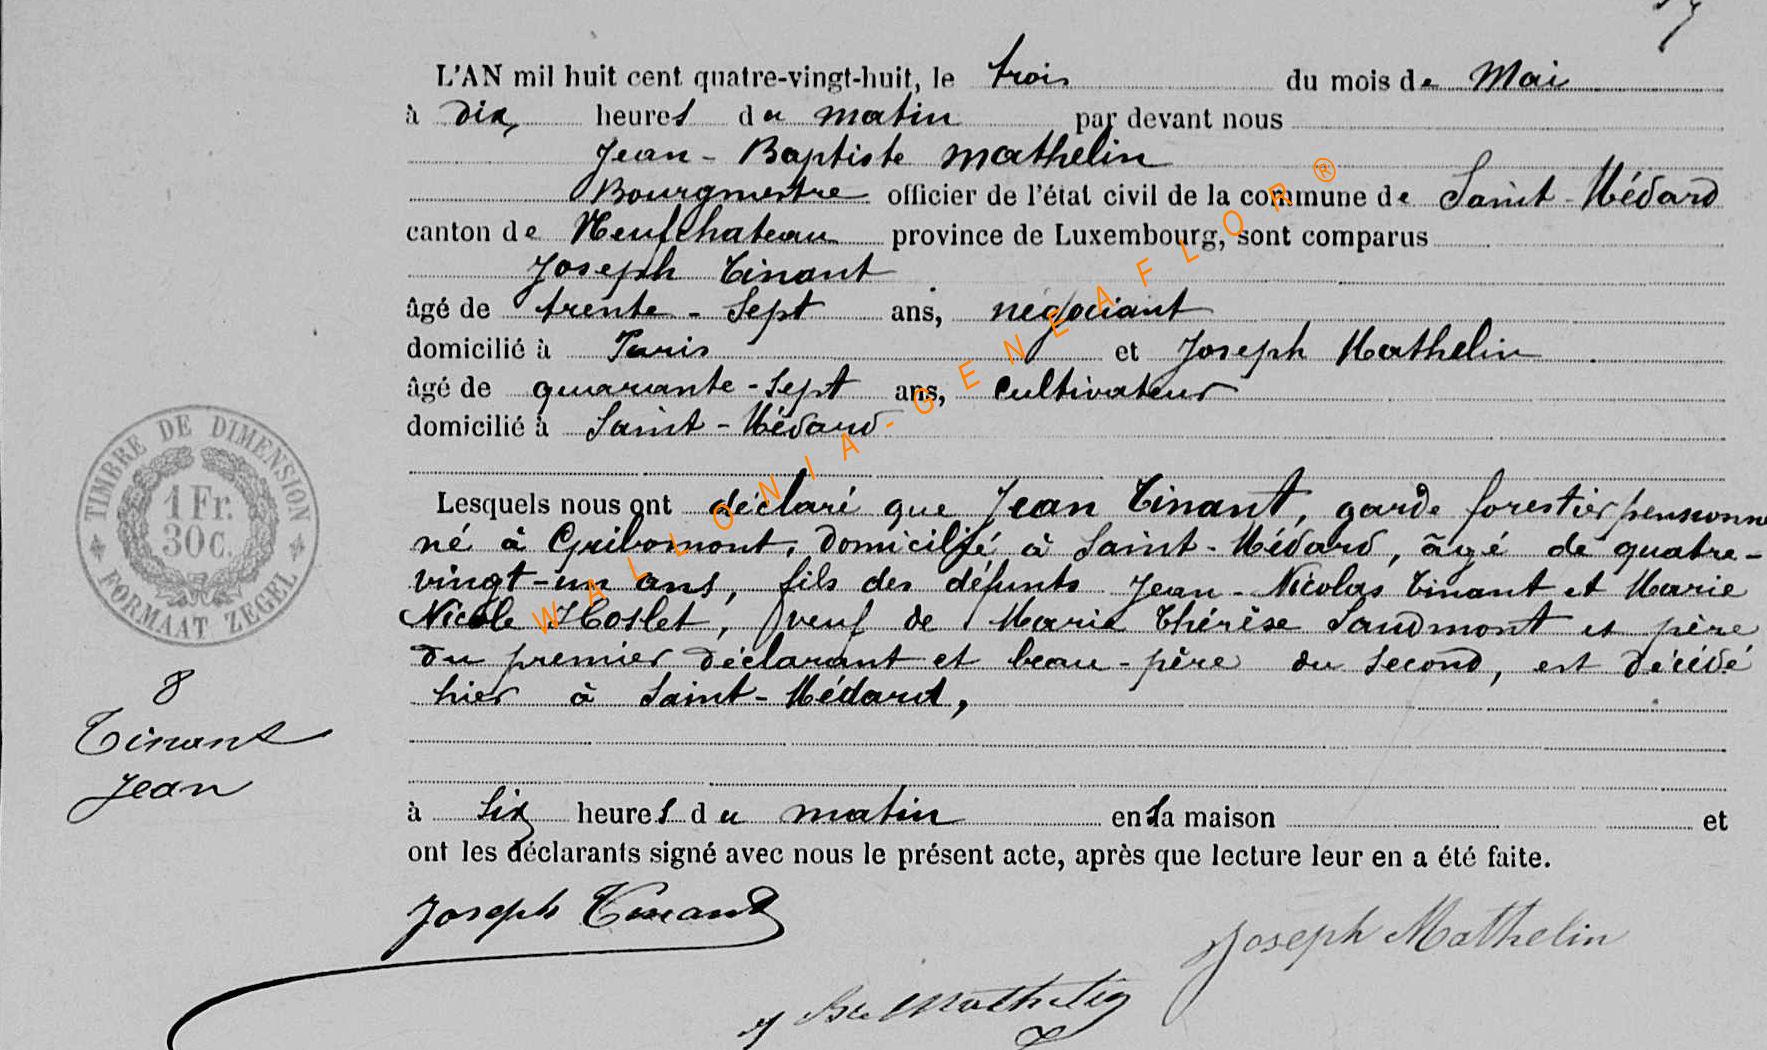 L'AN mil huit cent quatre-vingt-huit, le trois du mois de Mai
à dix heures du matin par devant nous
Jean-Baptiste Mathelin
Bourgmestre officier de l'état civil de la commune de Saint-Médard
canton de Neufchateau province de Luxembourg, sont comparus
Joseph Tinant
âgé de trente-sept ans, négociant
domicilié à Paris et Joseph Mathelin
âgé de quarante-sept ans, cultivateur
domicilié à Saint-Médard
Lesquels nous ont déclaré que Jean Tinant, garde forestier pensionné
né à Gribomont, domicilié à Saint-Médard, âgé de quatre-
vingt-un ans, fils des défunts Jean-Nicolas Tinant et Marie
Nicole Hoslet, veuf de Marie Thérèse Saudmont et père
du premier déclarant et beau-père du second, est décédé
hier à Saint-Médard,
à six heures du matin en sa maison et
ont les déclarants signé avec nous le présent acte, après que lecture leur en a été faite.
Joseph Tinant
Joseph Mathelin
J Bte Mathelin
8
Tinant
Jean
TIMBRE DE DIMENSION
1 Fr.
30 C.
FORMAAT ZEGEL
WALLONIA-GENEAFLOR®